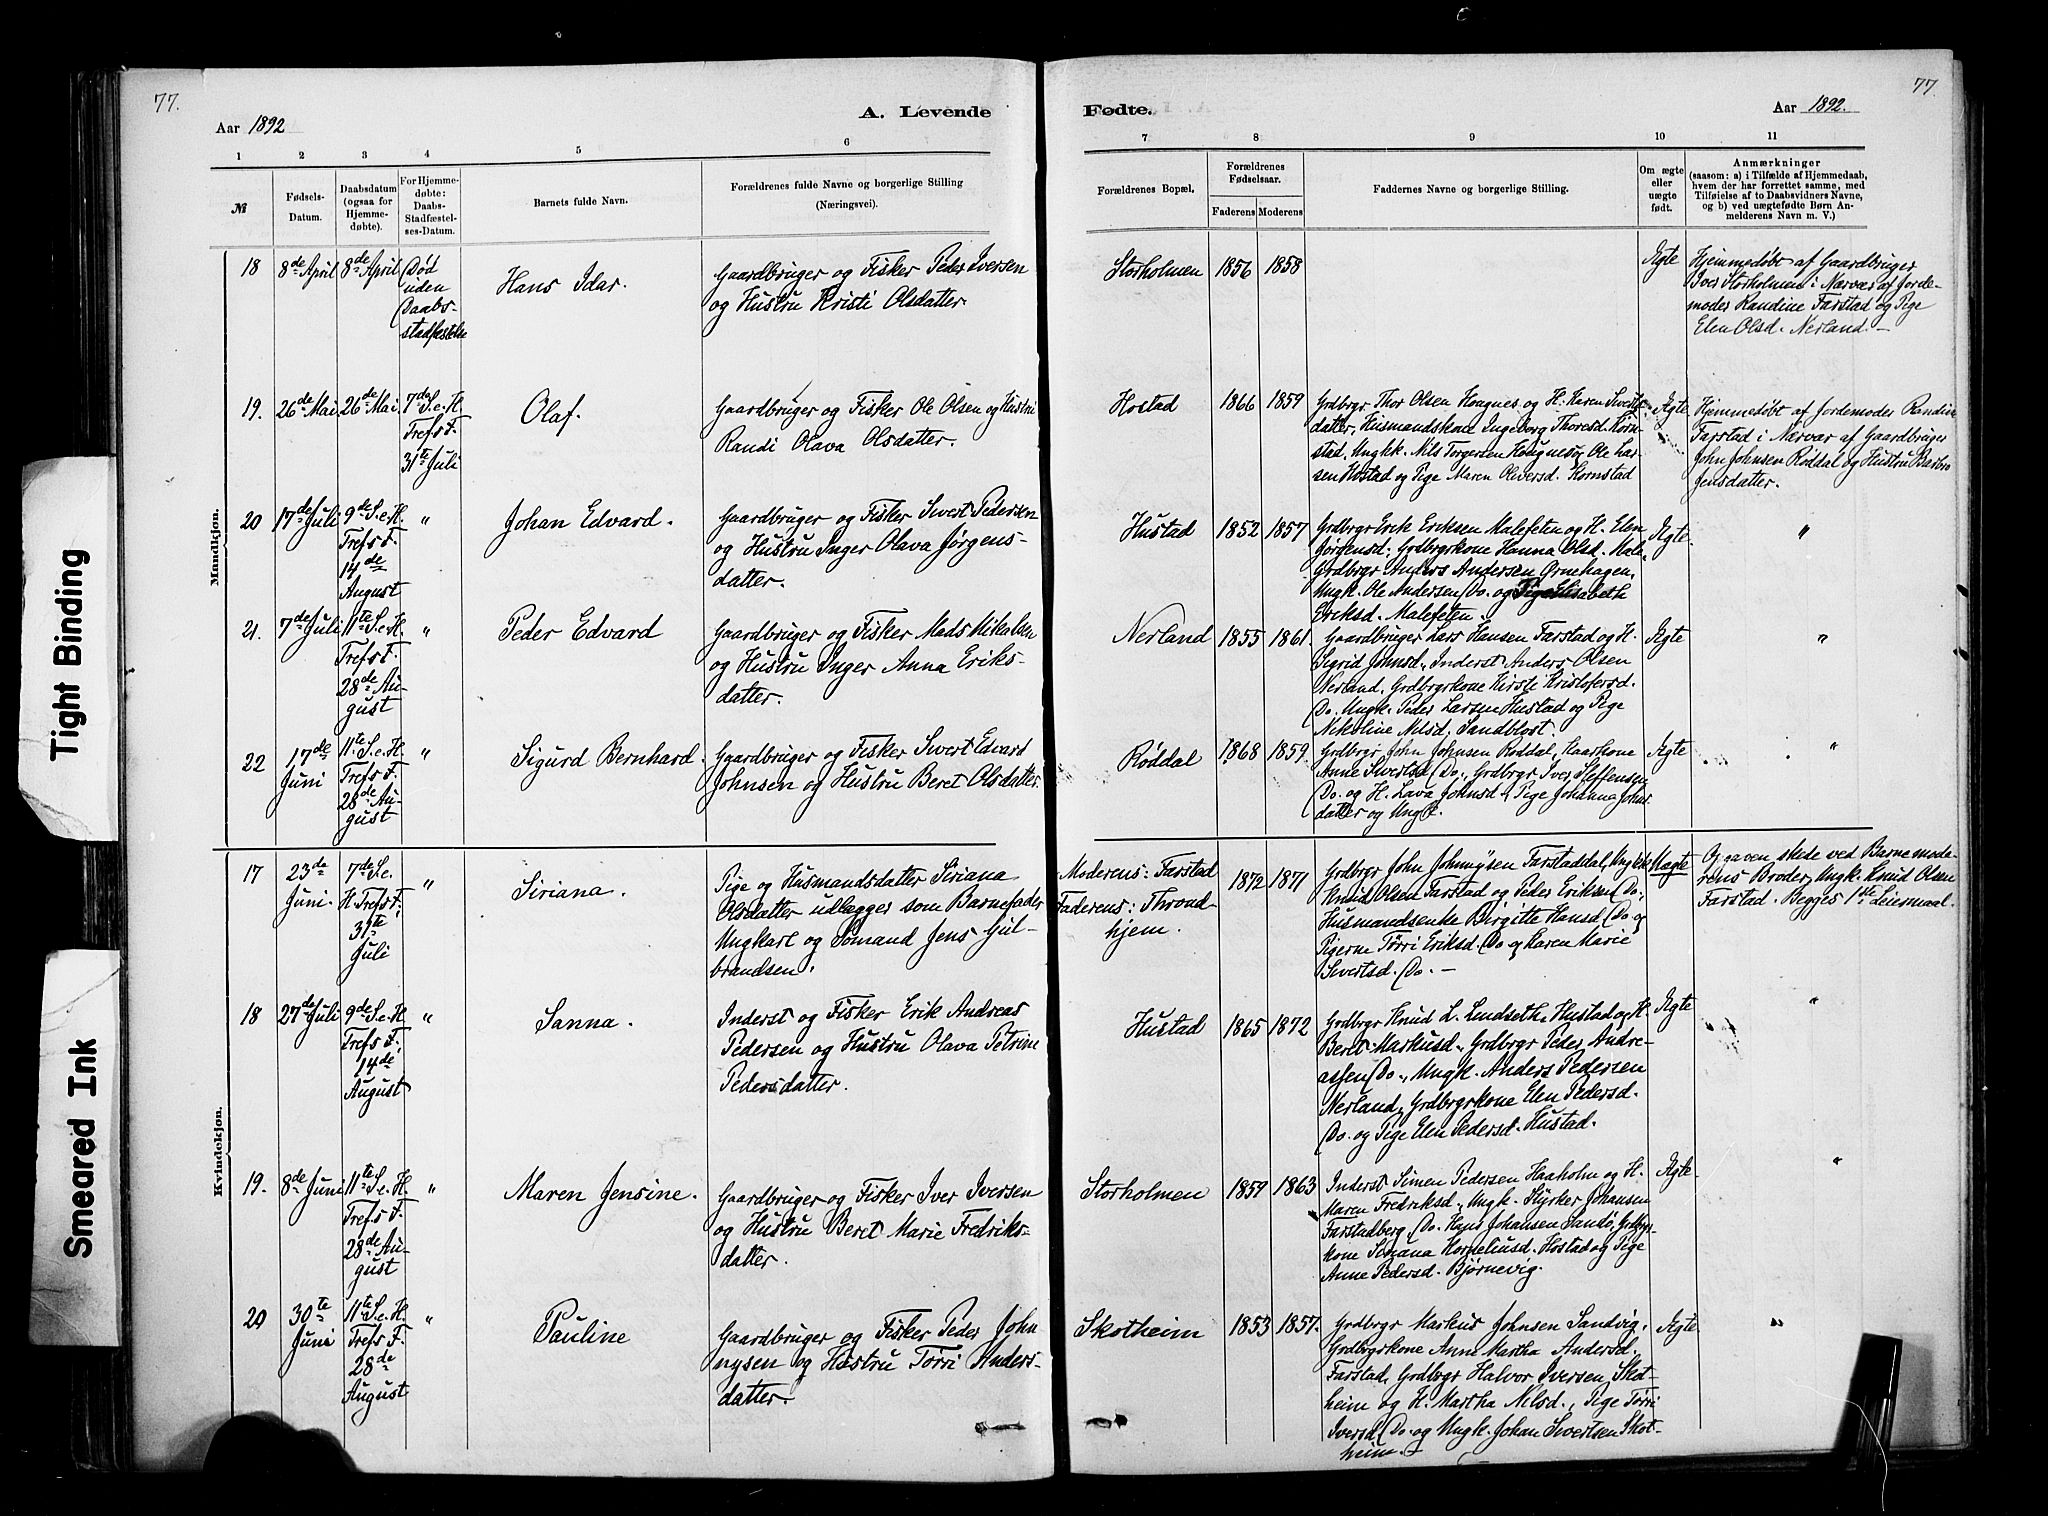 77.
77.
Aar 1892
A. Levende
Fødte.
Aar 1892.
1 2 3 4 5 6
7 8 9 10 11
№
Fødsels-
Datum.
Daabsdatum
(ogsaa for
Hjemme-
døbte).
For Hjemme-
døbte:
Daabs-
Stadfæstel-
ses-Datum.
Barnets fulde Navn.
Forældrenes fulde Navne og borgerlige Stilling
(Næringsvei).
Forældrenes Bopæl.
Forældrenes
Fødselsaar.
Faderens Moderens
Faddernes Navne og borgerlige Stilling.
Om ægte
eller
uægte
født.
Anmærkninger
(saasom: a) i Tilfælde af Hjemmedaab,
hvem der har forrettet samme, med
Tilføielse af to Daabsvidners Navne,
og b) ved uægtefødte Børn An-
melderens Navn m. V.)
Mandkjøn.
18
8de April
8de April
Død
uden
Daabs-
stadfæstelse
Hans Idar.
Gaardbruger og Fisker Peder Iversen
og Hustru Kristi Olsdatter.
Storholmen
1856
1858
Ægte
Hjemmedøbt af Gaardbruger
Iver Storholmen i Nærvær af Jorde-
moder Randine Farstad og Pige
Elen Olsd. Nerland. —
19.
26de Mai
26de Mai
7de S. e. H.
Trefs F.
31te Juli
Olaf.
Gaardbruger og Fisker Ole Olsen og Hustru
Randi Olava Olsdatter.
Hostad
1866
1859
Grdbrgr Thor Olsen Hougnes og H. Karen Siverts-
datter, Husmandskone Ingeborg Thoresd. Korn-
stad, Ungkk. Nils Torgersen Hougnes og Ole Lar-
sen Hostad og Pige Maren Oliversd. Kornstad
Ægte
Hjemmedøbt af Jordemoder Randine
Farstad i Nærvær af Gaardbruger
John Johnsen Røddal og Hustru Barbro
Jensdatter.
20
17de Juli
9de S. e. H.
Trefs F.
14de
August
"
Johan Edvard.
Gaardbruger og Fisker Sivert Pedersen
og Hustru Inger Olava Jørgens-
datter.
Hustad
1852
1857
Grdbrgr Erik Eriksen Malefeten og H. Elen
Jørgensd. Grdbrgrkone Hanna Olsd. Male
Grdbrgr Anders Andersen Ørnehagen,
Ungk. Ole Andersen Do. og Pige Elisabeth
Eriksd. Malefeten.
Ægte.
"
21.
7de Juli
11te S. e. H.
Trefs F.
28de Au-
gust
"
Peder Edvard
Gaardbruger og Fisker Mads Nikolsen
og Hustru Inger Anna Eriks-
datter.
Nerland
1855
1861.
Gaardbruger Lars Hansen Farstad og H.
Sigrid Johnsd., Inderst Anders Olsen
Nerland, Grdbrgrkone Kirsti Kristofersd.
Do. Ungk. Peder Larsen Hustad og Pige
Nikoline Nilsd. Sandblost.
Ægte
"
22
17de
Juni
11te S. e. H.
Trefs F.
28de Au-
gust
"
Sigurd Bernhard.
Gaardbruger og Fisker Sivert Edvard
Johnsen og Hustru Beret Olsdatter.
Røddal
1868
1859.
Grdbrgr John Johnsen Røddal, Kaarkone
Anne Sivertsd. Do., Grdbrgr Iver Steffensen
Do. og H. Lava Johnsd., Pige Johanna Johns-
datter og Ungk.
Ægte
"
Kvindekjøn.
17
23de
Juni.
7de S. e.
H. Trefs F.
31te
Juli
"
Siriana.
Pige og Husmandsdatter Siriana
Olsdatter udlægger som Barnefader
Ungkarl og Sømand Jens Gul-
brandsen.
Moderens: Farstad
Faderens: Thrond-
hjem.
1872
1871
Grdbrgr John Johnnysen Farstaddal, Ungkk.
Knud Olsen Farstad og Peder Eriksen Do.,
Husmandsenke Birgitte Hansd. Do. og
Pigerne Tørri Eriksd. Do. og Karen Marie
Sivertsd. Do. —
Uægte
Opgaven skede ved Barnemode-
rens Broder, Ungk. Knud Olsen
Farstad. Begges 1ste Leiermaal.
18
27de Juli
9de S. e. H.
Trefs F.
14de
August
"
Sanna.
Inderst og Fisker Erik Andreas
Pedersen og Hustru Olava Petrine
Pedersdatter.
Hustad
1865
1872
Grdbrgr Knud L. Lindseth Hustad og H.
Beret Markusd., Grdbrgr Peder Andre-
assen Do., Ungk. Anders Pedersen
Nerland, Grdbrgrkone Elen Pedersd.
Do. og Pige Elen Pedersd. Hustad.
Ægte
"
19.
8de Juni
11te S. e. H.
Trefs F.
28de Au-
gust
"
Maren Jensine.
Gaardbruger og Fisker Iver Iversen
og Hustru Beret Marie Fredriks-
datter.
Storholmen
1859
1863
Inderst Simen Pedersen Haaholm og H.
Maren Fredriksd., Ungk. Styrker Johansen
Farstadberg, Do. Hans Johansen Sandø, Grdbrgr-
kone Siriana Korneliusd. Hostad og Pige
Anne Pedersd. Bjørnevig.
Ægte.
"
20
30te
Juni
11te S. e. H.
Trefs F.
28de
August
"
Pauline
Gaardbruger og Fisker Peder John
nysen og Hustru Tørri Anders-
datter.
Skotheim
1853
1857.
Grdbrgr Markus Johnsen Sandvig,
Grdbrgrkone Anne Martha Andersd.
Farstad, Grdbrgr Halvor Iversen Skot-
heim og H. Martha Nilsd., Pige Tørri
Iversd. Do. og Ungk. Johan Sivertsen Skot-
heim. —
Ægte.
"
Tight Binding
Smeared Ink